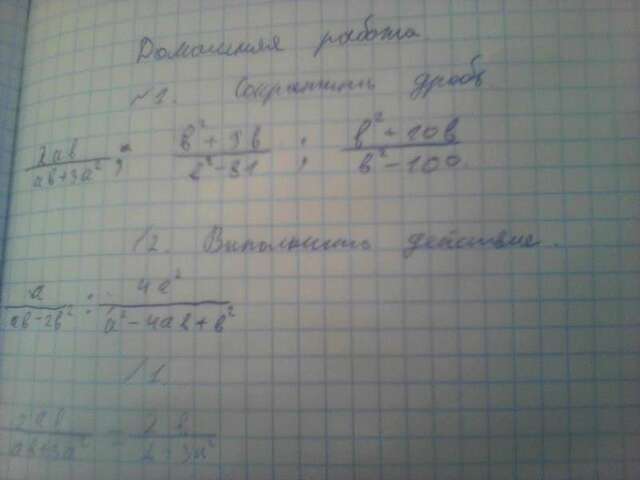 Домашняя работа
№1. Сократить дробь.
2ab/ab+3a² ; b²+9b/b²-81 ; b²+10b/b²-100
№2. Выполнить действие.
a/ab-2b² : 4a²/a²-4ab+b²
№1.
2ab/ab+3a² =